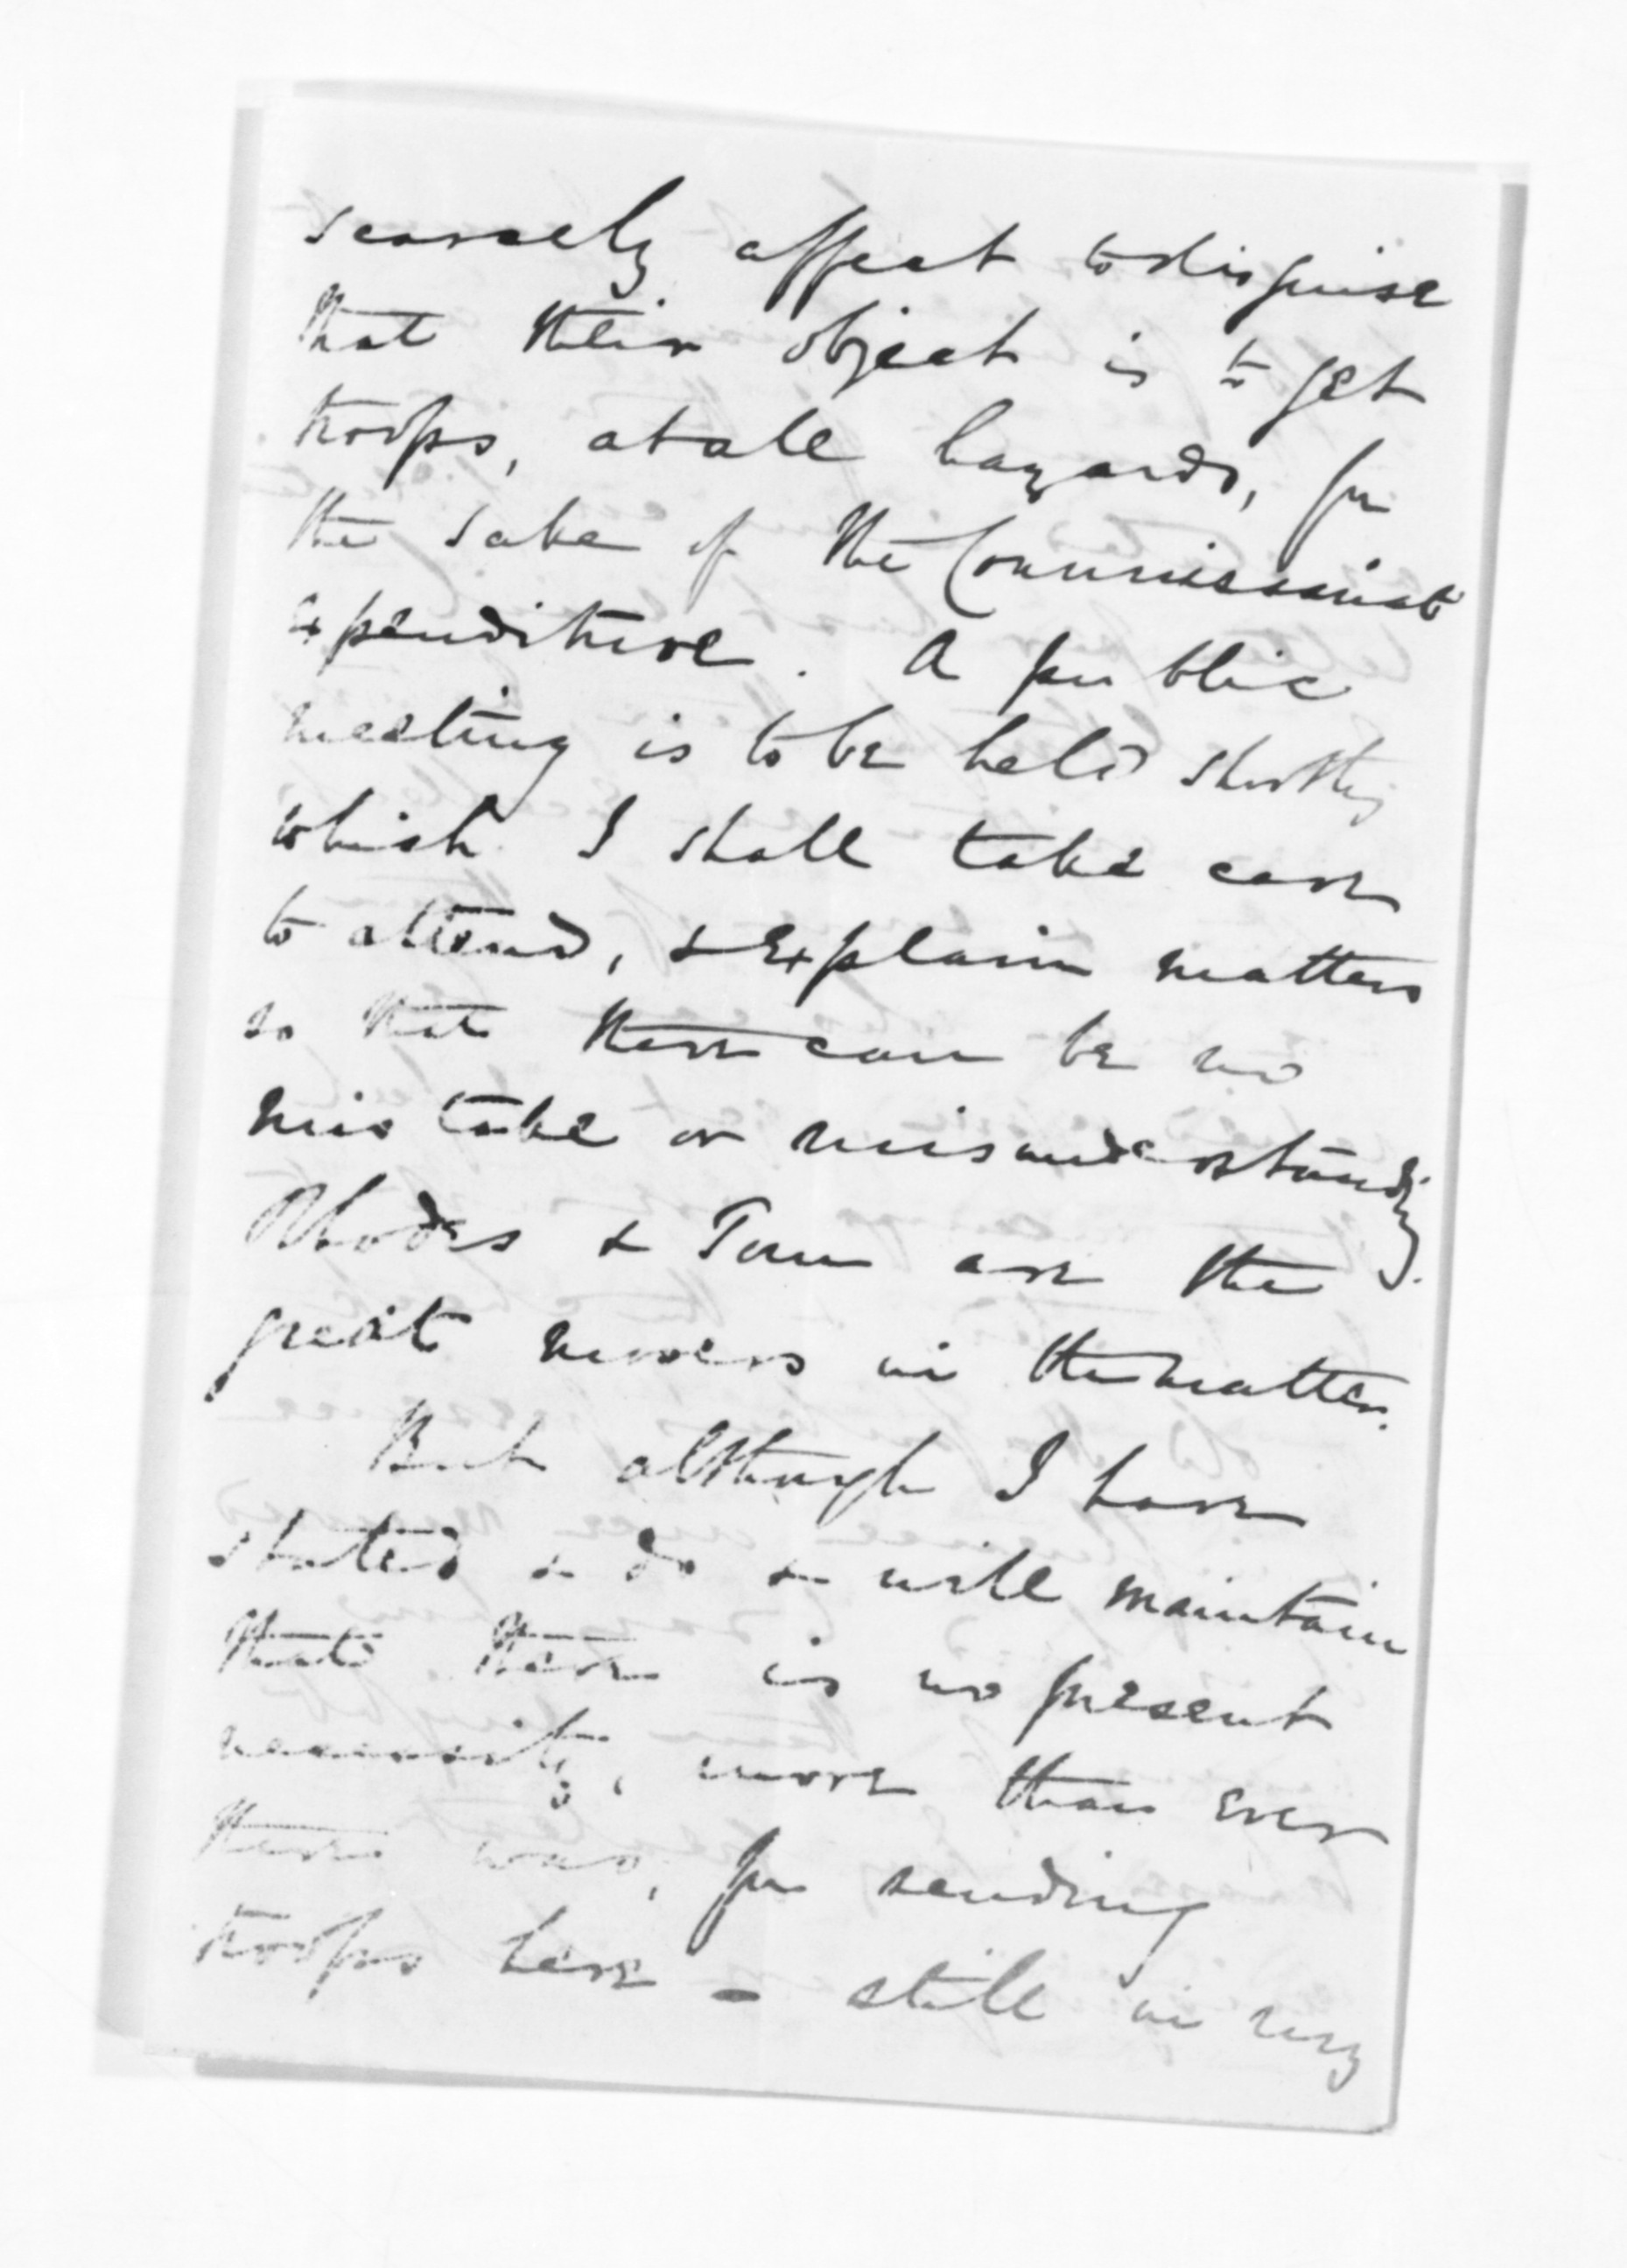 scarcely affect to disguise
that their object is to get
troops, at all hazards, for
the sake of the Commissariat
expenditure. A public
meeting is to be held shortly
which I shall take care
to attend, & explain matters
so that there can be no
mistake or misunderstanding.
Rhodes & Tom are the
great movers in the matter.
But although I have
stated & do & will maintain
that there is no present
necessity, more than ever
there was, for sending
troops here - still in my